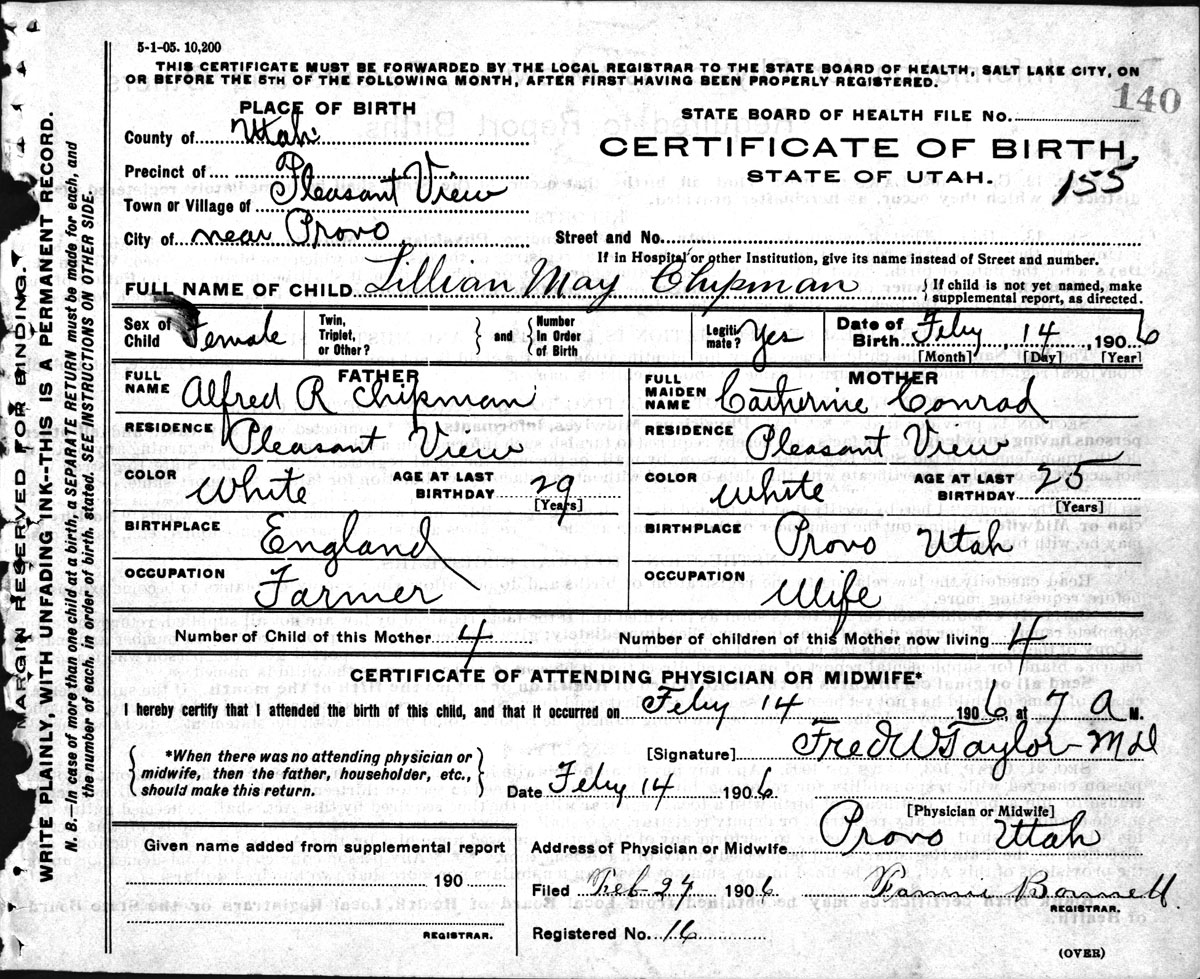 5-1-05. 10,200
THIS CERTIFICATE MUST BE FORWARDED BY THE LOCAL REGISTRAR TO THE STATE BOARD OF HEALTH, SALT LAKE CITY, ON
OR BEFORE THE 5TH OF THE FOLLOWING MONTH, AFTER FIRST HAVING BEEN PROPERLY REGISTERED.
140
PLACE OF BIRTH
STATE BOARD OF HEALTH FILE No.
County of Utah
CERTIFICATE OF BIRTH,
STATE OF UTAH. 155
Precinct of
Pleasant View
Town or Village of
City of near Provo
Street and No.
If in Hospital or other Institution, give its name instead of Street and number.
FULL NAME OF CHILD Lillian May Chipman
{If child is not yet named, make
supplemental report, as directed.
Sex of Child Female
Twin, Triplet, or Other?
} and {
Number In Order of Birth
Legitimate? Yes
Date of Birth Feby 14, 1906
[Month] [Day] [Year]
FATHER
FULL NAME Alfred R Chipman
RESIDENCE Pleasant View
COLOR White
AGE AT LAST BIRTHDAY 29
[Years]
BIRTHPLACE England
OCCUPATION Farmer
MOTHER
FULL MAIDEN NAME Catherine Conrad
RESIDENCE Pleasant View
COLOR White
AGE AT LAST BIRTHDAY 25
[Years]
BIRTHPLACE Provo Utah
OCCUPATION Wife
Number of Child of this Mother 4
Number of children of this Mother now living 4
CERTIFICATE OF ATTENDING PHYSICIAN OR MIDWIFE*
I hereby certify that I attended the birth of this child, and that it occurred on Feby 14 1906, at 7 A M.
{*When there was no attending physician or
midwife, then the father, householder, etc.,
should make this return.}
[Signature] Fred W Taylor MD
Date Feby 14 1906.
[Physician or Midwife]
Address of Physician or Midwife Provo Utah
Given name added from supplemental report
190
REGISTRAR.
Filed Feb 27 1906
Bonnett.
REGISTRAR.
Registered No. 16
(OVER)
MARGIN RESERVED FOR BINDING.
WRITE PLAINLY, WITH UNFADING INK--THIS IS A PERMANENT RECORD.
N. B.—In case of more than one child at a birth, a SEPARATE RETURN must be made for each, and
the number of each, in order of birth, stated. SEE INSTRUCTIONS ON OTHER SIDE.